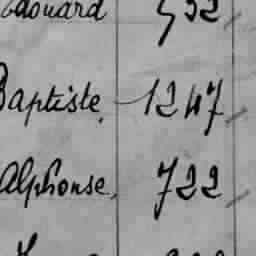 Edouard 532
Baptiste. 1247
Alphonse, 722